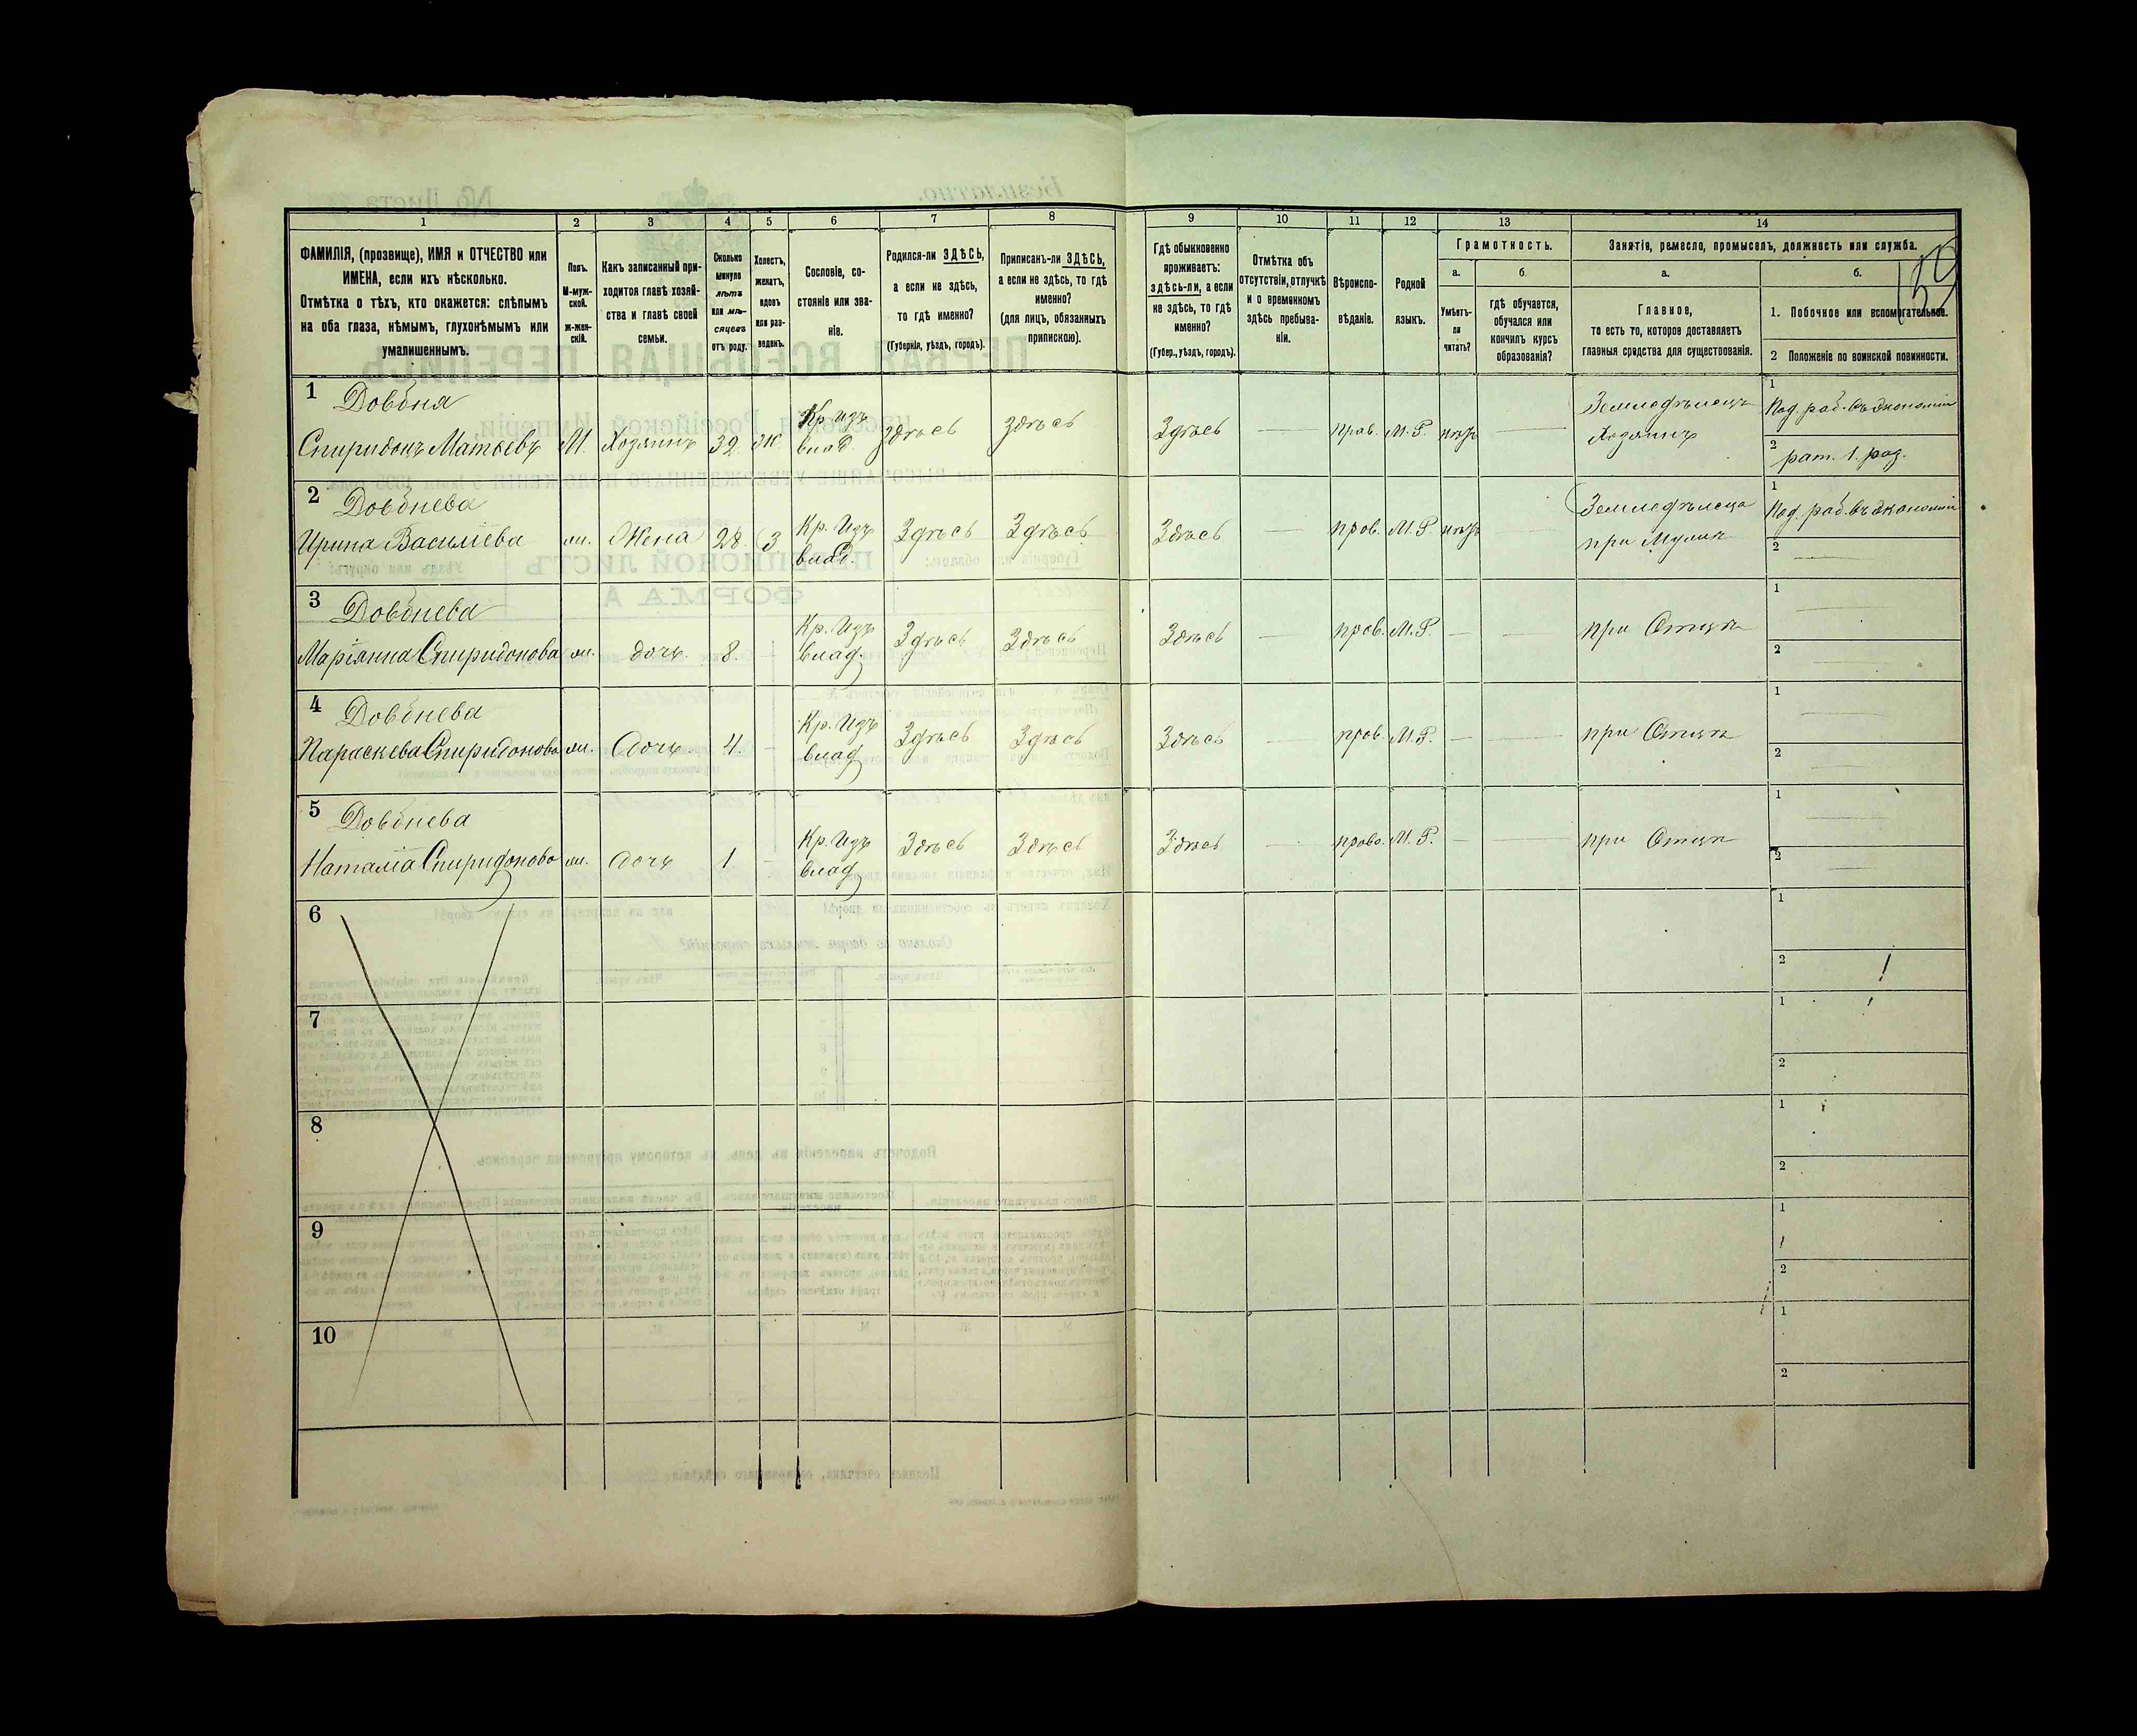 59
1 2 3 4 5 6 7 8 9 10 11 12 13 14
ФАМИЛІЯ, (прозвище), ИМЯ и ОТЧЕСТВО или
ИМЕНА, если ихъ нѣсколько.
Отмѣтка о тѣхъ, кто окажется: слѣпымъ
на оба глаза, нѣмымъ, глухонѣмымъ или
умалишеннымъ.
Полъ.
М-муж-
ской.
ж-жен-
скій.
Какъ записанный при-
ходится главѣ хозяй-
ства и главѣ своей
семьи.
Сколько
минуло
лѣтъ
или мѣ-
сяцевъ
отъ роду.
Холостъ,
женатъ,
вдовъ
или раз-
веденъ.
Сословіе, со-
стояніе или зва-
ніе.
Родился-ли ЗДѢСЬ,
а если не здѣсь,
то гдѣ именно?
(Губернія, уѣздъ, городъ).
Приписанъ-ли ЗДѢСЬ,
а если не здѣсь, то гдѣ
именно?
(для лицъ, обязанныхъ
припискою).
Гдѣ обыкновенно
проживаетъ:
здѣсь-ли, а если
не здѣсь, то гдѣ
именно?
(Губер., уѣздъ, городъ).
Отмѣтка объ
отсутствіи, отлучкѣ
и о временномъ
здѣсь пребыва-
ніи.
Вѣроиспо-
вѣданіе.
Родной
языкъ.
Грамотность.
а.
Умѣетъ-
ли
читать?
б.
гдѣ обучается,
обучался или
кончилъ курсъ
образованія?
Занятія, ремесло, промыселъ, должность или служба.
а.
Главное,
то есть то, которое доставляетъ
главныя средства для существованія.
б.
1. Побочное или вспомогательное.
2 Положеніе по воинской повинности.
1 Довбня
Спиридонъ Матвѣевъ М. Хозяинъ 32 Ж. Кр. изъ влад. здѣсь здѣсь Здѣсь — прав. М.Р. нѣтъ — Земледѣлецъ Хозяинъ
1 Под. раб. въ экономіи
2 рат. 1. раз.
2 Довбнева
Ирина Василіева ж. Жена 28. З Кр. Изъ влад. Здѣсь Здѣсь Здѣсь — прав. М.Р. нѣтъ Земледѣлеца при Мужѣ
1 Под. раб. въ экономіи
2 —
3 Довбнева
Маріянна Спиридонова ж. дочь. 8. — Кр. Изъ влад. Здѣсь Здѣсь Здѣсь — прав. М.Р. — — при Отцѣ
1 —
2 —
4 Довбнева
Параскева Спиридонова ж. дочь. 4. — Кр. Изъ влад Здѣсь Здѣсь Здѣсь — прав. М.Р. — — при Отцѣ
1 —
2 —
5 Довбнева
Наталіа Спиридонова ж. дочь 1. — Кр. Изъ влад Здѣсь Здѣсь Здѣсь — прав. М.Р. — — при Отцѣ
1 —
2 —
6
1
2
7
1
2
8
1
2
9
1
2
10
1
2